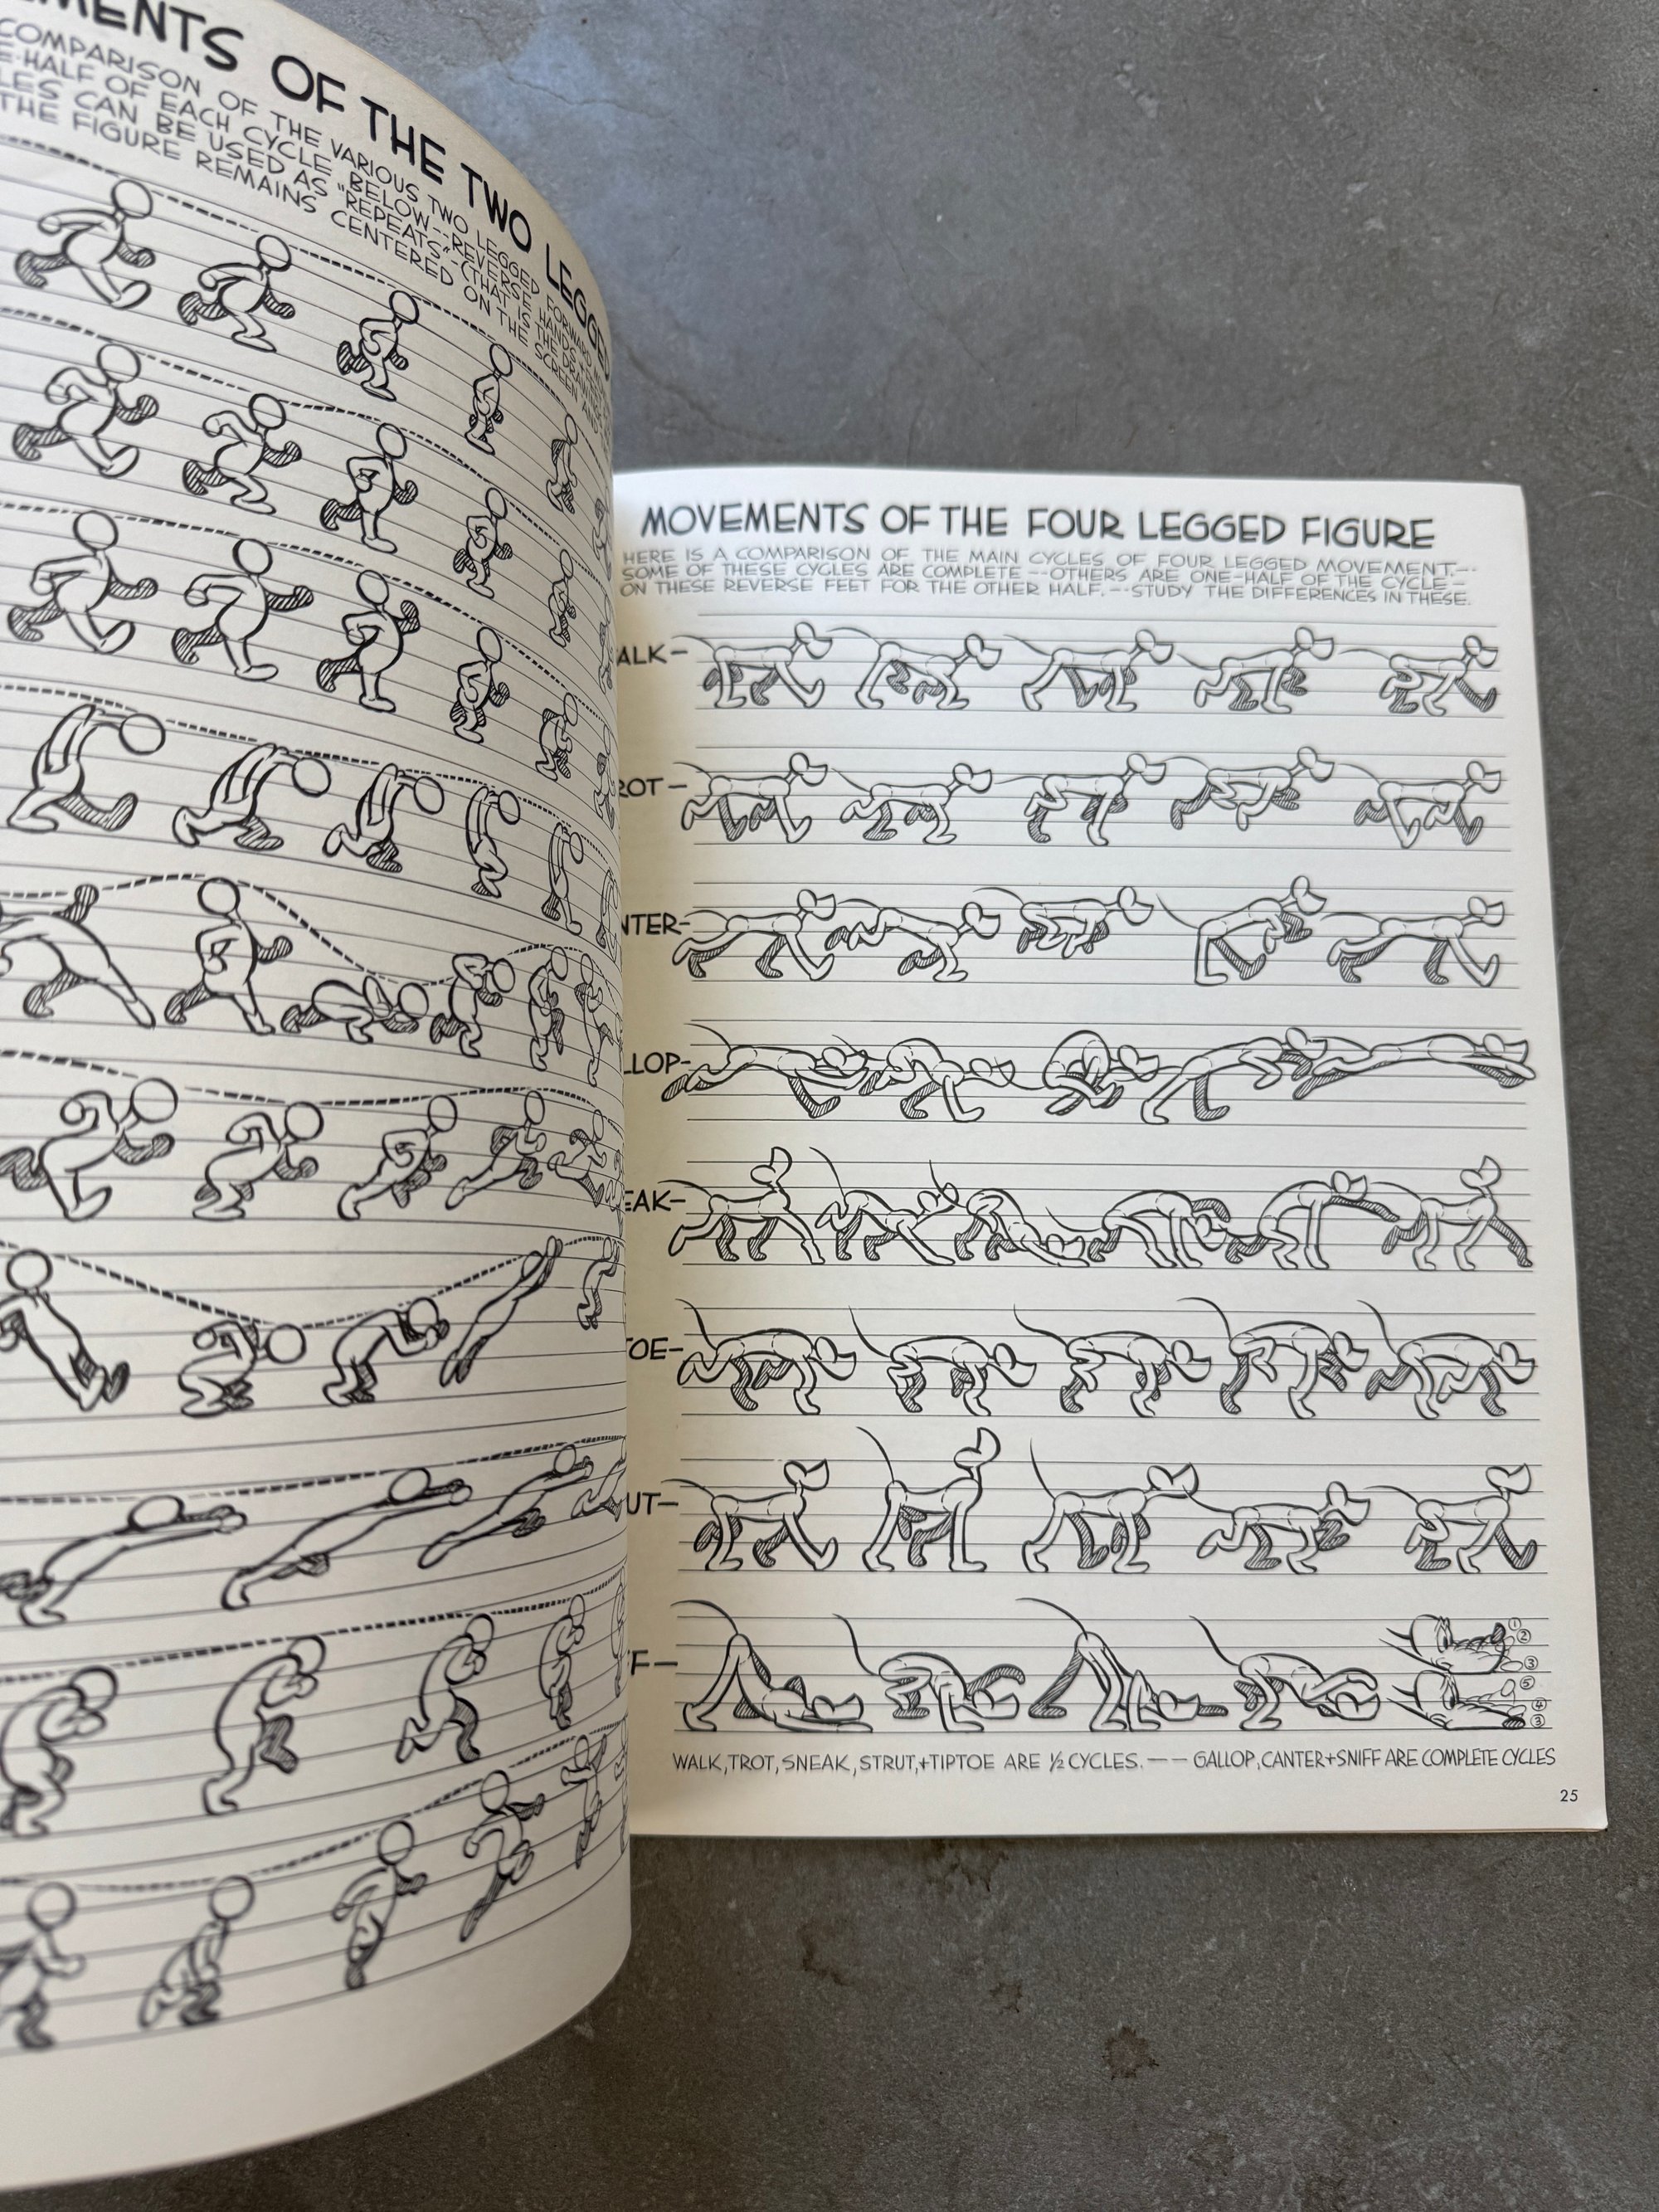 MENTS OF THE TWO LEGGED
COMPARISON OF THE VARIOUS TWO LEGGED FORWARD
E-HALF OF EACH CYCLE BELOW--REVERSE HANDS
LES CAN BE USED AS "REPEATS"-(THAT IS THE DRAW
THE FIGURE REMAINS CENTERED ON THE SCREEN AND
MOVEMENTS OF THE FOUR LEGGED FIGURE
HERE IS A COMPARISON OF THE MAIN CYCLES OF FOUR LEGGED MOVEMENT.--
SOME OF THESE CYCLES ARE COMPLETE --OTHERS ARE ONE-HALF OF THE CYCLE--
ON THESE REVERSE FEET FOR THE OTHER HALF.--STUDY THE DIFFERENCES IN THESE.
ALK-
ROT-
NTER-
LLOP-
EAK-
TOE-
UT-
FF-
1
2
3
5
4
3
WALK, TROT, SNEAK, STRUT,+TIPTOE ARE ½ CYCLES. -- GALLOP, CANTER+SNIFF ARE COMPLETE CYCLES
25